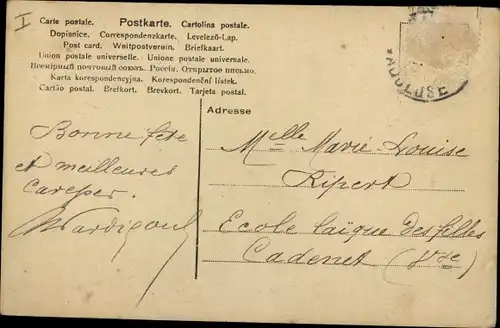 I
Carte postale. Postkarte. Cartolina postale.
Dopisnice. Correspondenzkarte. Levelező-Lap.
Post card. Weltpostverein. Briefkaart.
Union postale universelle. Unione postale universale.
Всемірный почтовый союзъ. Россія. Открытое письмо.
Karta korespondencyjna. Korespondenční lístek.
Cartão postal. Brefkort. Brevkort. Tarjeta postal.
VAUCLUSE
Bonne fête
et meilleures
caresses.
Adresse
Melle Marie Louise
Ripert
Ecole laïque des filles
Cadenet (Vse)